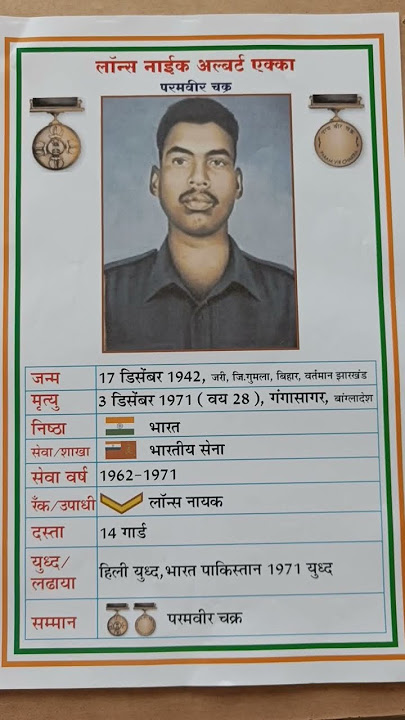 लॉन्स नाईक अल्बर्ट एक्का
परमवीर चक्र
जन्म 17 डिसेंबर 1942, जरी, जि.गुमला, बिहार, वर्तमान झारखंड
मृत्यु 3 डिसेंबर 1971 ( वय 28 ), गंगासागर, बांग्लादेश
निष्ठा भारत
सेवा/शाखा भारतीय सेना
सेवा वर्ष 1962-1971
रँक/उपाधी लॉन्स नायक
दस्ता 14 गार्ड
युध्द/
लढाया हिली युध्द,भारत पाकिस्तान 1971 युध्द
सम्मान परमवीर चक्र